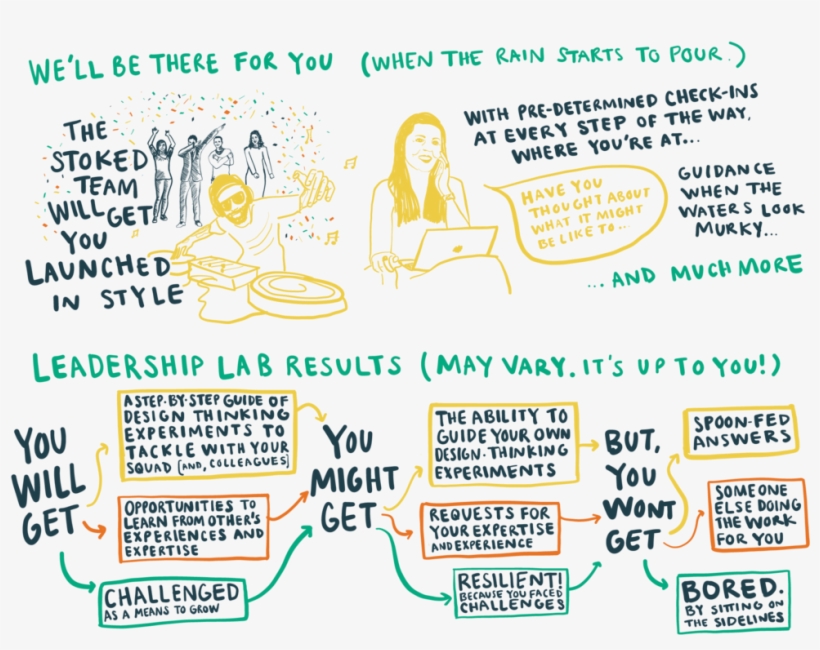 WE'LL BE THERE FOR YOU (WHEN THE RAIN STARTS TO POUR.)
THE
STOKED
TEAM
WILL GET
YOU
LAUNCHED
IN STYLE
WITH PRE-DETERMINED CHECK-INS
AT EVERY STEP OF THE WAY,
WHERE YOU'RE AT...
HAVE YOU
THOUGHT ABOUT
WHAT IT MIGHT
BE LIKE TO...
GUIDANCE
WHEN THE
WATERS LOOK
MURKY...
...AND MUCH MORE
LEADERSHIP LAB RESULTS (MAY VARY. IT'S UP TO YOU!)
YOU
WILL
GET
A STEP-BY-STEP GUIDE OF
DESIGN THINKING
EXPERIMENTS TO
TACKLE WITH YOUR
SQUAD [AND, COLLEAGUES]
OPPORTUNITIES TO
LEARN FROM OTHER'S
EXPERIENCES AND
EXPERTISE
CHALLENGED
AS A MEANS TO GROW
YOU
MIGHT
GET
THE ABILITY TO
GUIDE YOUR OWN
DESIGN-THINKING
EXPERIMENTS
REQUESTS FOR
YOUR EXPERTISE
AND EXPERIENCE
RESILIENT!
BECAUSE YOU FACED
CHALLENGES
BUT,
YOU
WONT
GET
SPOON-FED
ANSWERS
SOMEONE
ELSE DOING
THE WORK
FOR YOU
BORED.
BY SITTING ON
THE SIDELINES